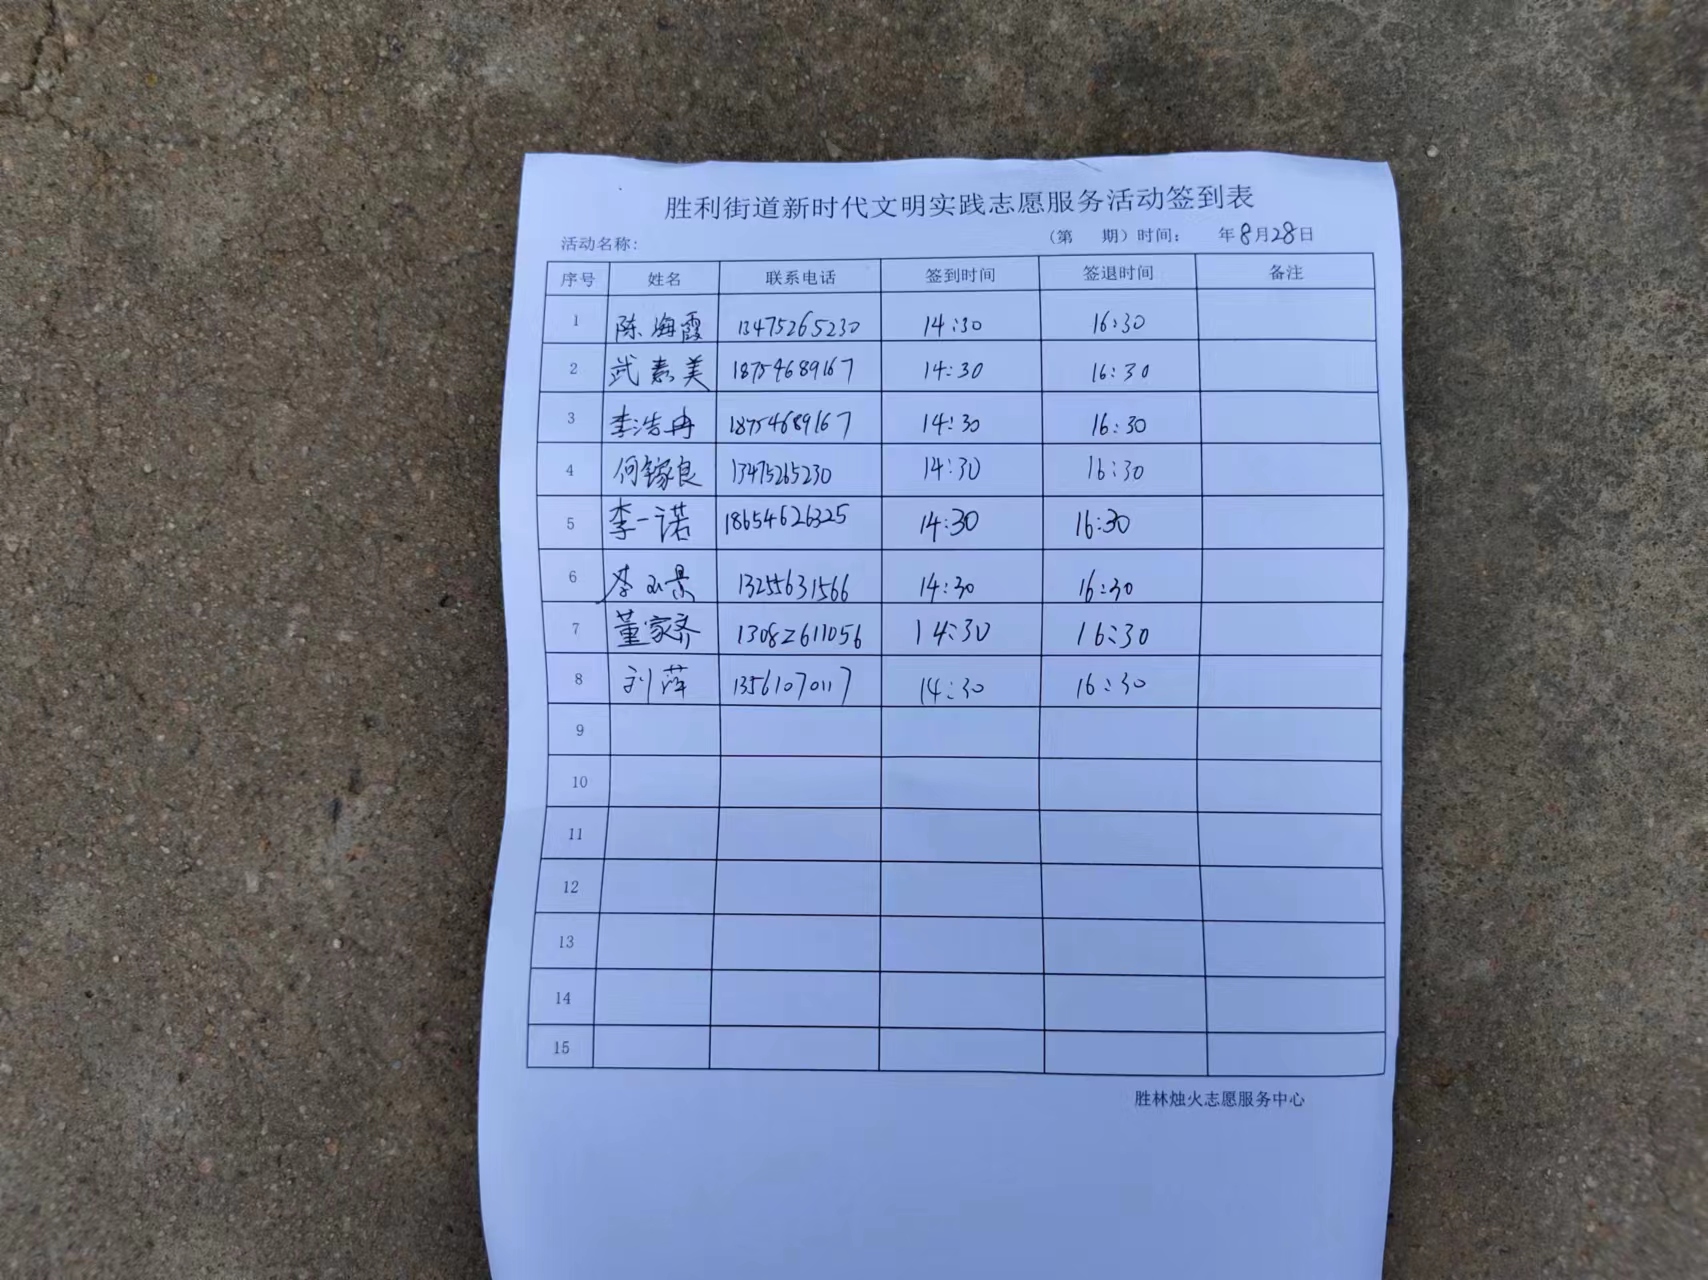 胜利街道新时代文明实践志愿服务活动签到表
活动名称: （第 期）时间: 年8月28日
序号 姓名 联系电话 签到时间 签退时间 备注
1 陈海霞 13475265230 14:30 16:30
2 武素美 18754689167 14:30 16:30
3 李浩冉 18754689167 14:30 16:30
4 何镓良 13475265230 14:30 16:30
5 李一诺 18654626325 14:30 16:30
6 李 景 13255631566 14:30 16:30
7 董家齐 13082611056 14:30 16:30
8 刘萍 13561070117 14:30 16:30
9
10
11
12
13
14
15
胜林烛火志愿服务中心